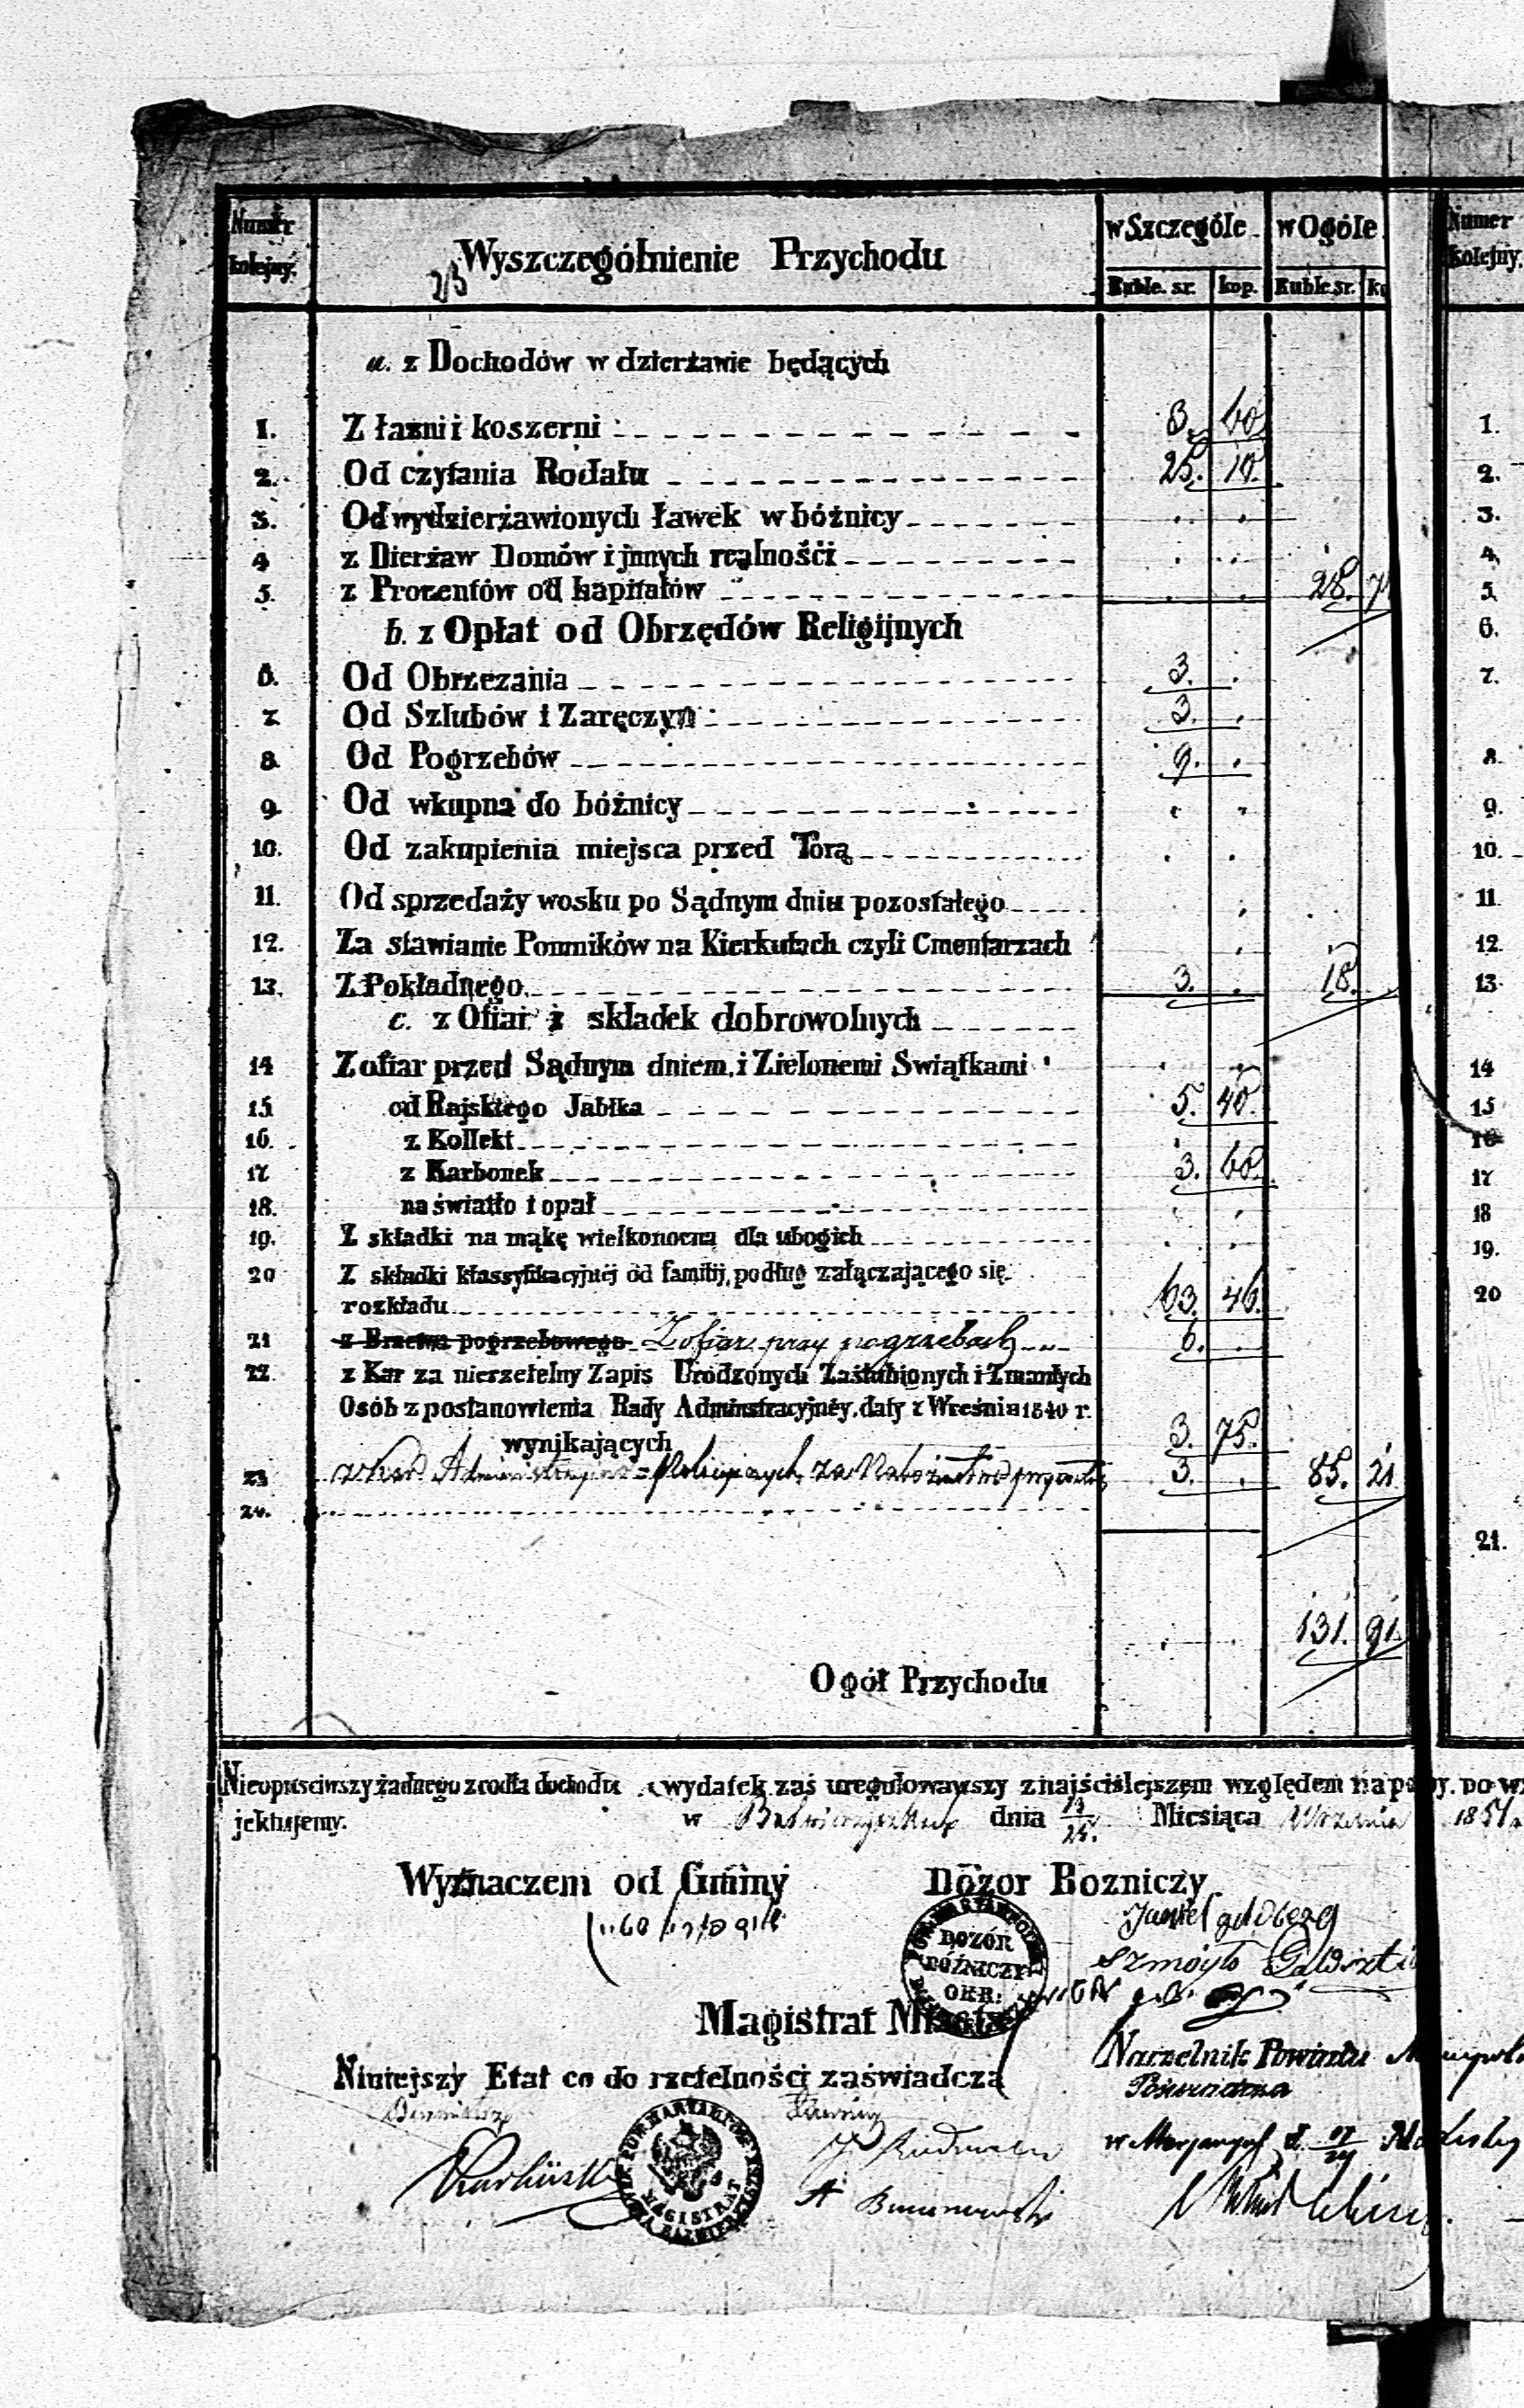 Numer kolejny. Wyszczególnienie Przychodu w Szczególe w Ogóle Numer Kolejny.
Ruble. sr. kop. Ruble sr.
a. z Dochodów w dzierżawie będących
1. Z łaźni i koszerni 3. 60 1.
2. Od czytania Rodału 25. 10. 2.
3. Od wydzierżawionych ławek w bóżnicy 3.
4 z Dierżaw Domów i jnnych realnośći 4,
5. z Procentów od kapitałów 28. 7 5.
b. z Opłat od Obrzędów Religijnych 6.
6. Od Obrzezania 3. 7.
7. Od Szlubów i Zaręczyn 3.
8. Od Pogrzebów 9. 8.
9. Od wkupna do bóżnicy 9.
10. Od zakupienia miejsca przed Torą 10.
11. Od sprzedaży wosku po Sądnym dniu pozostałego 11.
12. Za stawianie Pomników na Kierkutach czyli Cmentarzach 12.
13. Z Pokładnego 3. 18. 13.
c. z Ofiar i składek dobrowolnych
14 Z ofiar przed Sądnym dniem, i Zielonemi Swiątkami 14
15 od Rajskiego Jabłka 5. 40. 15
16. z Kollekt 16
17 z Karbonek 3. 60. 17
18. na światło i opał 18
19. Z składki na mąkę wielkonocną dla ubogich 19.
20 Z składki klassyfikacyjnéj od familij, podług załączającego się
rozkładu 63. 46. 20
21 z Bractwa pogrzebowego Z ofiar przy pogrzebach 6.
22. z Kar za nierzetelny Zapis Urodzonych Zaślubionych i Zmarłych
Osób z postanowienia Rady Adminstracyjnéy, daty z Wreśnia 1840 r.
wynikających 3. 75.
23 z kar Administracyjno-Policyjnych za Nabożeństwo 3. 85. 21
24.
21.
131. 91.
Ogół Przychodu
Nieopuściwszy żadnego zrodła dochodu a wydatek zaś uregulowawszy z najściślejszem względem na po
jektujemy. w dnia 13/25. Miesiąca Września 1851
Wyznaczem od Gminy Dozór Bozniczy
DOZÓR BÓŹNICZY OKR:
Magistrat Miasta
Naczelnik Powiatu
Niniejszy Etat co do rzetelności zaświadcza
Burmistrz Ławnicy
MAGISTRAT